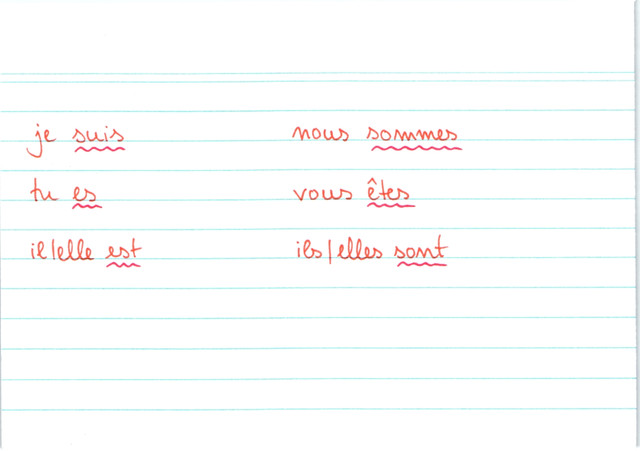 je suis nous sommes
tu es vous êtes
il/elle est ils/elles sont